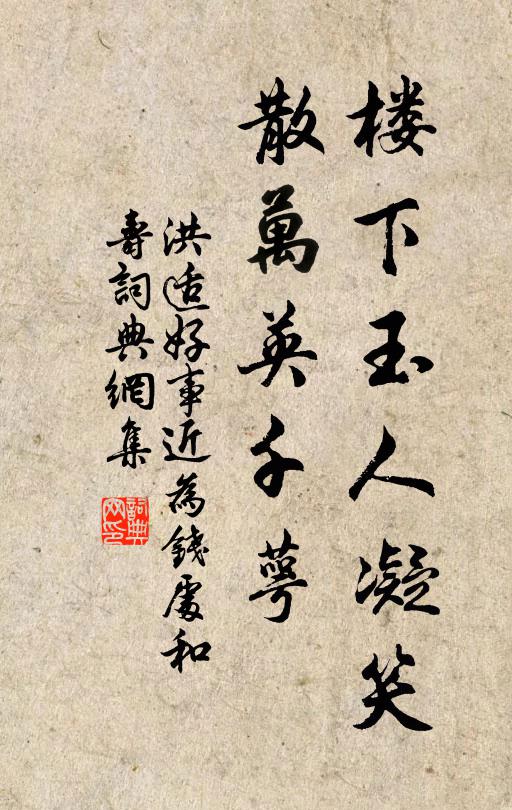 楼下玉人凝笑
散萬英千萼
洪适好事近為錢處和
壽詞典網集
詞典網印